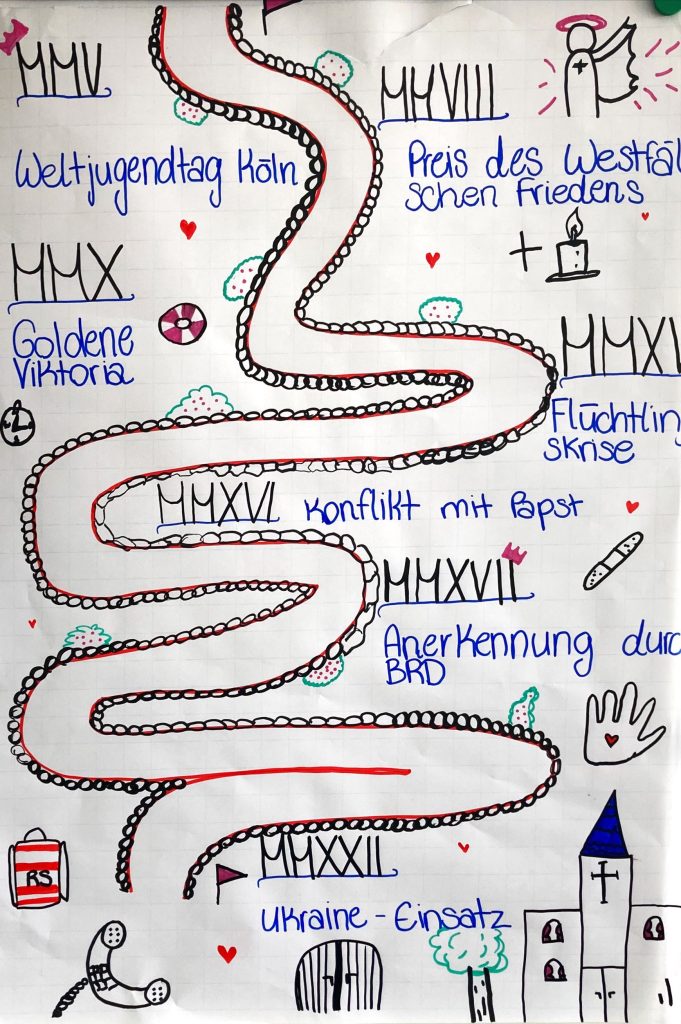 MMV
Weltjugendtag Köln
MMVIII
Preis des Westfäl
schen Friedens
+
MMX
Goldene
Viktoria
MMXV
Flüchtlin
skrise
MMXVI Konflikt mit Papst
MMXVII
Anerkennung durc
BRD
RS
MMXXII
Ukraine - Einsatz